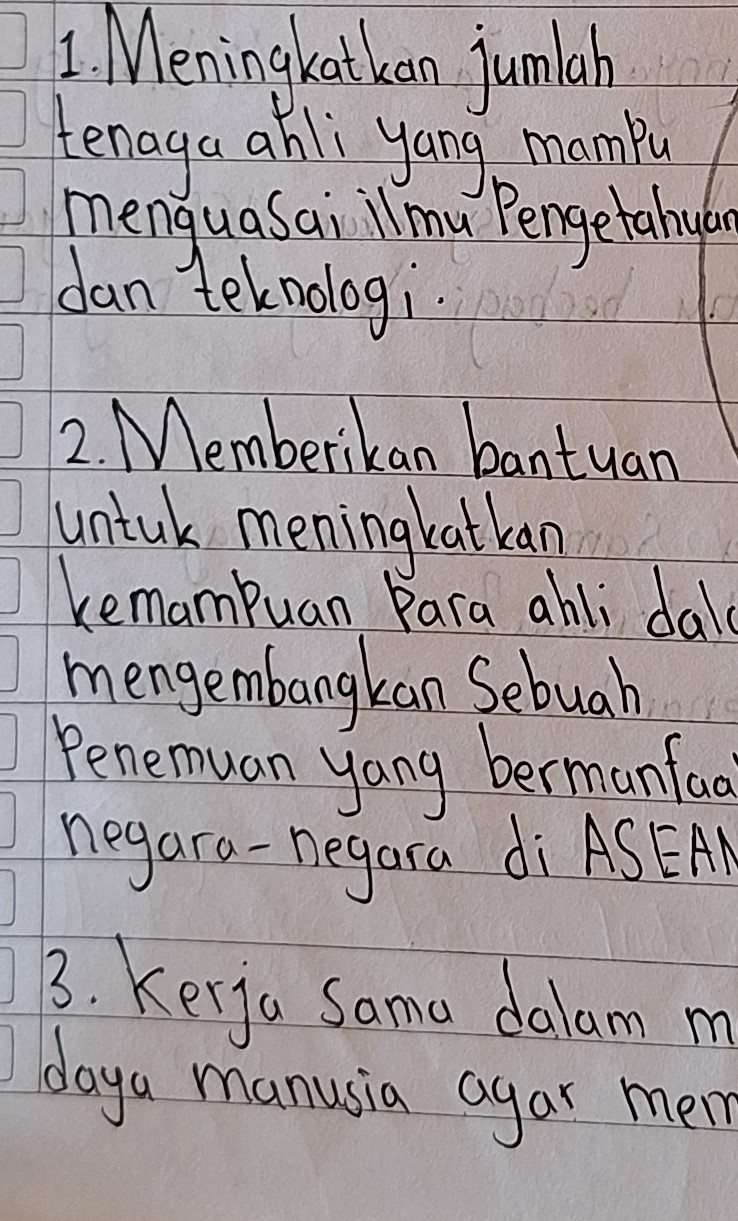 1. Meningkatkan jumlah
tenaga ahli yang mampu
menguasai ilmu Pengetahuan
dan teknologi.
2. Memberikan bantuan
untuk meningkatkan
kemampuan para ahli
mengembangkan Sebuah
Penemuan yang
negara-negara di ASEAN
3. Kerja Sama dalam
daya manusia agar